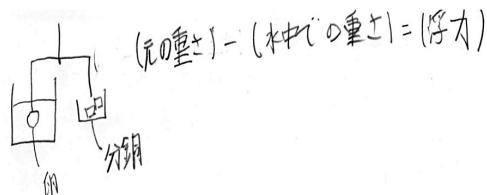 (元の重さ) - (水中での重さ) = (浮力)
分銅
卵